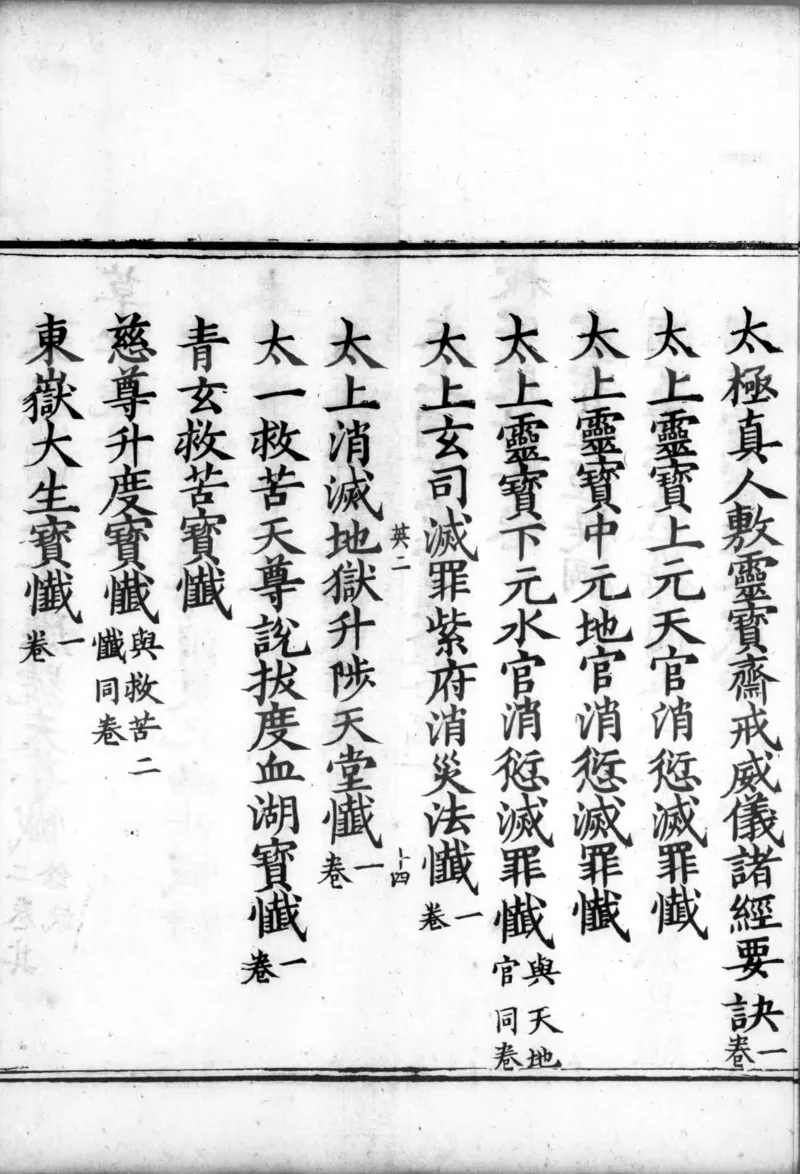 太極真人敷靈寶齋戒威儀諸經要訣一卷
太上靈寶上元天官消愆滅罪懺
太上靈寶中元地官消愆滅罪懺
太上靈寶下元水官消愆滅罪懺與天地官同卷
太上玄司滅罪紫府消災法懺一卷
英二 十四
太上消滅地獄升陟天堂懺一卷
太一救苦天尊說拔度血湖寶懺一卷
青玄救苦寶懺
慈尊升度寶懺與救苦二懺同卷
東嶽大生寶懺一卷